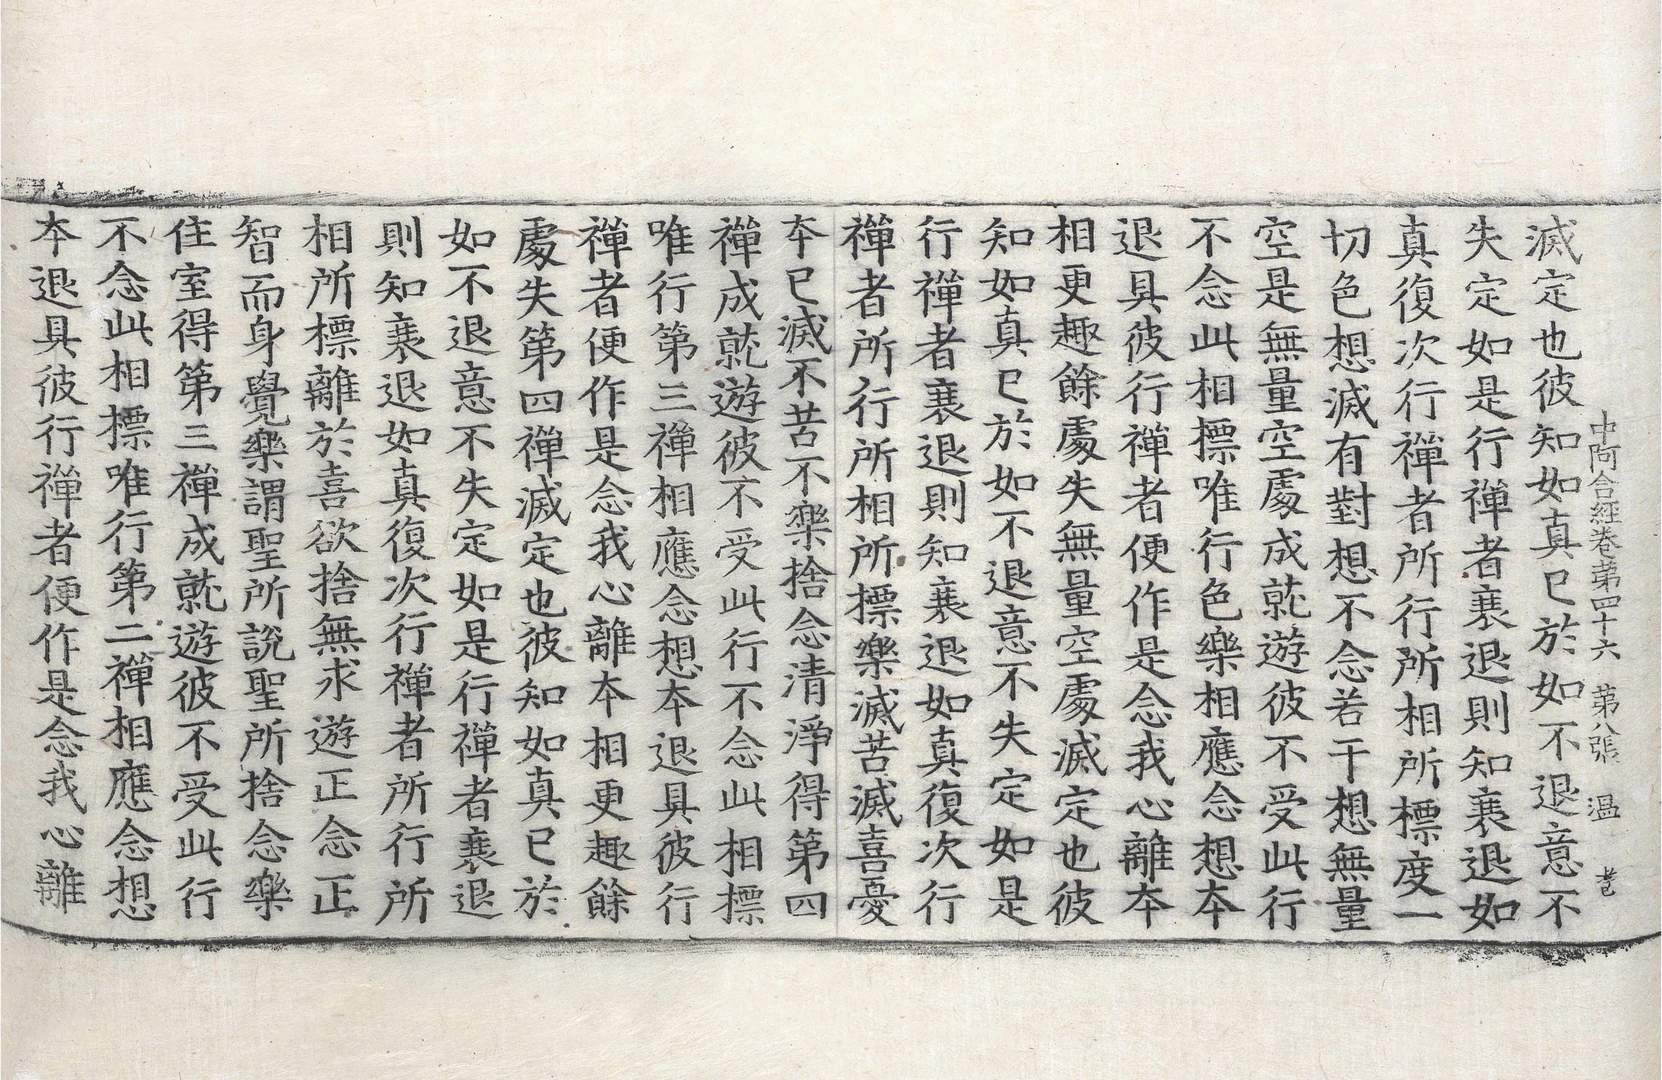 中阿含經卷第四十六 第八張 溫
滅定也彼知如真已於如不退意不
失定如是行禪者衰退則知衰退如
真復次行禪者所行所相所標度一
切色想滅有對想不念若干想無量
空是無量空處成就遊彼不受此行
不念此相標唯行色樂相應念想本
退具彼行禪者便作是念我心離本
相更趣餘處失無量空處滅定也彼
知如真已於如不退意不失定如是
行禪者衰退則知衰退如真復次行
禪者所行所相所標樂滅苦滅喜憂
本已滅不苦不樂捨念清淨得第四
禪成就遊彼不受此行不念此相標
唯行第三禪相應念想本退具彼行
禪者便作是念我心離本相更趣餘
處失第四禪滅定也彼知如真已於
如不退意不失定如是行禪者衰退
則知衰退如真復次行禪者所行所
相所標離於喜欲捨無求遊正念正
智而身覺樂謂聖所說聖所捨念樂
住室得第三禪成就遊彼不受此行
不念此相標唯行第二禪相應念想
本退具彼行禪者便作是念我心離